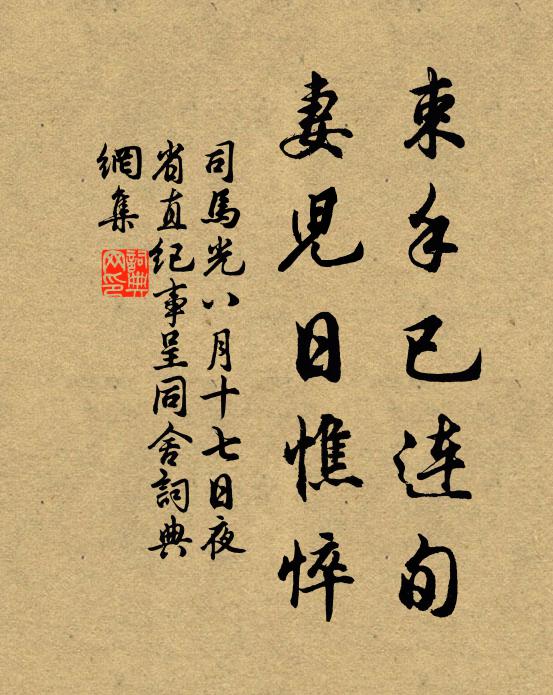 束手已连旬
妻児日憔悴
司馬光八月十七日夜
省直紀事呈同舍詞典
網集
詞典網印